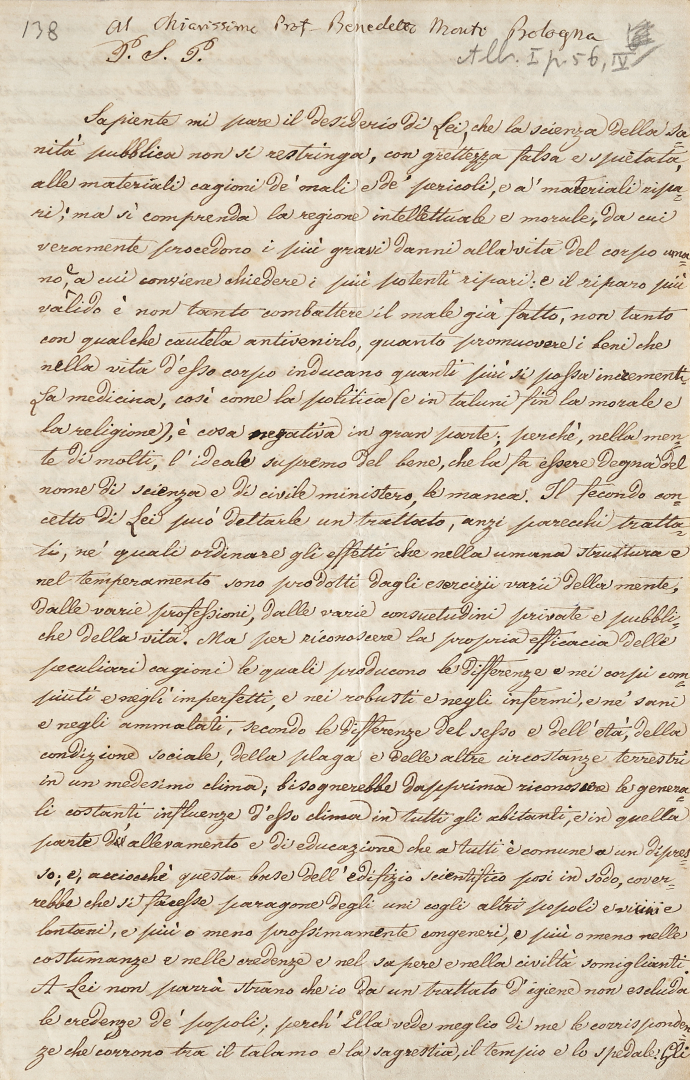 138 Al Chiarissimo Prof. Benedetto Monti Bologna
P. S. P. Alb. I p. 56, IV
Sapiente mi pare il desiderio di Lei, che la scienza della sa=
nità pubblica non si restringa, con grettezza falsa e spietata,
alle materiali cagioni de' mali e de' pericoli, e a' materiali ripa=
ri; ma sì comprenda la regione intellettuale e morale, da cui
veramente procedono i più gravi danni alla vita del corpo uma=
no, e a cui conviene chiedere i più potenti ripari: e il riparo più
valido è non tanto combattere il male già fatto, non tanto
con qualche cautela antivenirlo, quanto promuovere i beni che
nella vita d'esso corpo inducano quanti più si possa incrementi.
La medicina, così come la politica (e in taluni fin la morale e
la religione), è cosa negativa in gran parte; perchè, nella men=
te di molti, l'ideale supremo del bene, che la fa essere degna del
nome di scienza e di civile ministero, le manca. Il fecondo con=
cetto di Lei può dettarle un trattato, anzi parecchi tratta=
ti, ne' quali ordinare gli effetti che nella umana struttura e
nel temperamento sono prodotti dagli esercizii varii della mente,
dalle varie professioni, dalle varie consuetudini private e pubbli=
che della vita. Ma per riconoscere la propria efficacia delle
peculiari cagioni le quali producono le differenze e nei corpi com=
piuti e negl'imperfetti, e nei robusti e negli infermi, e ne' sani
e negli ammalati, secondo le differenze del sesso e dell'età, della
condizione sociale, della plaga e delle altre circostanze terrestri
in un medesimo clima; bisognerebbe dapprima riconoscere le genera=
li costanti influenze d'esso clima in tutti gli abitanti, e in quella
parte d'allevamento e di educazione che a tutti è comune a un dipres=
so; e, acciocchè questa base dell'edifizio scientifico posi in sodo, conver=
rebbe che si facesse paragone degli uni cogli altri popoli e vicini e
lontani, e più o meno prossimamente congeneri, e più o meno nelle
costumanze e nelle credenze e nel sapere e nella civiltà somiglianti.
A Lei non parrà strano che io da un trattato d'igiene non escluda
le credenze de' popoli; perch'Ella vede meglio di me le corrisponden=
ze che corrono tra il talamo e la sagrestia, il tempio e lo spedale. Gli